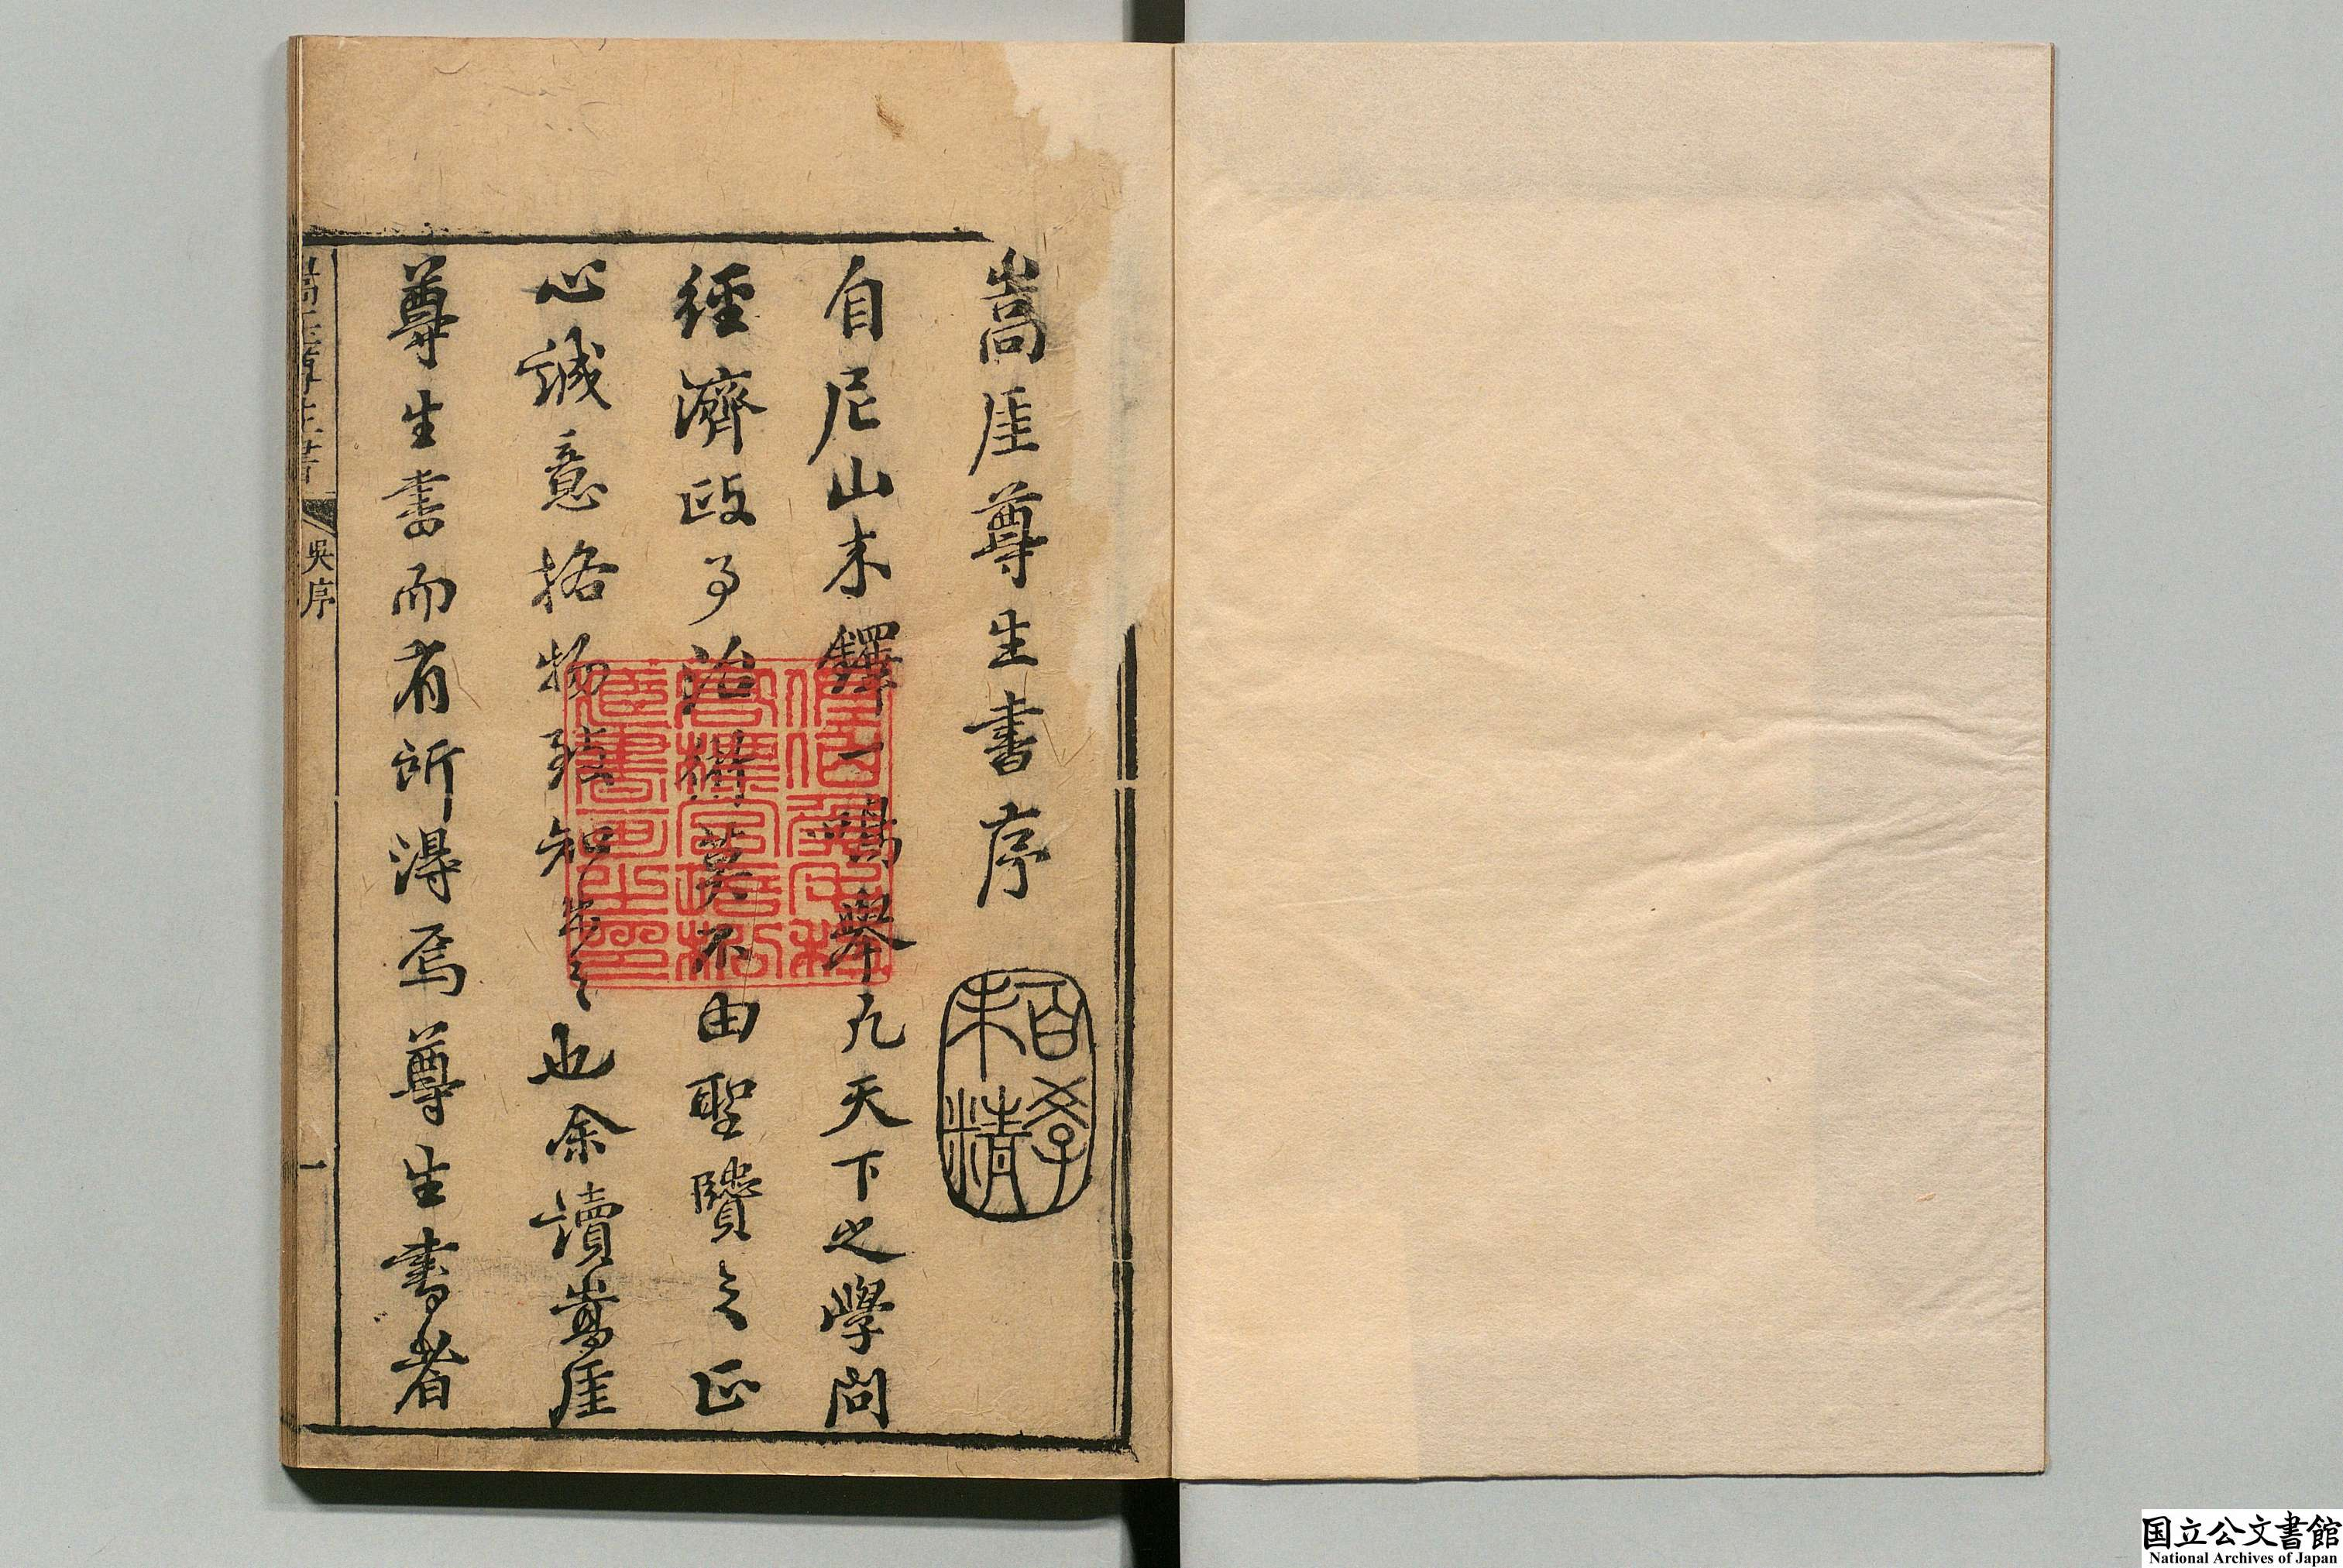 嵩厓尊生書序
百學未精
自尼山木鐸一鳴舉凡天下之學問
經濟政事治術莫不由聖賢之正
心誠意格物致知出之也余讀嵩厓
尊生書而有所得焉尊生書者
嵩厓尊生書 吳序 一
国立公文書館
National Archives of Japan